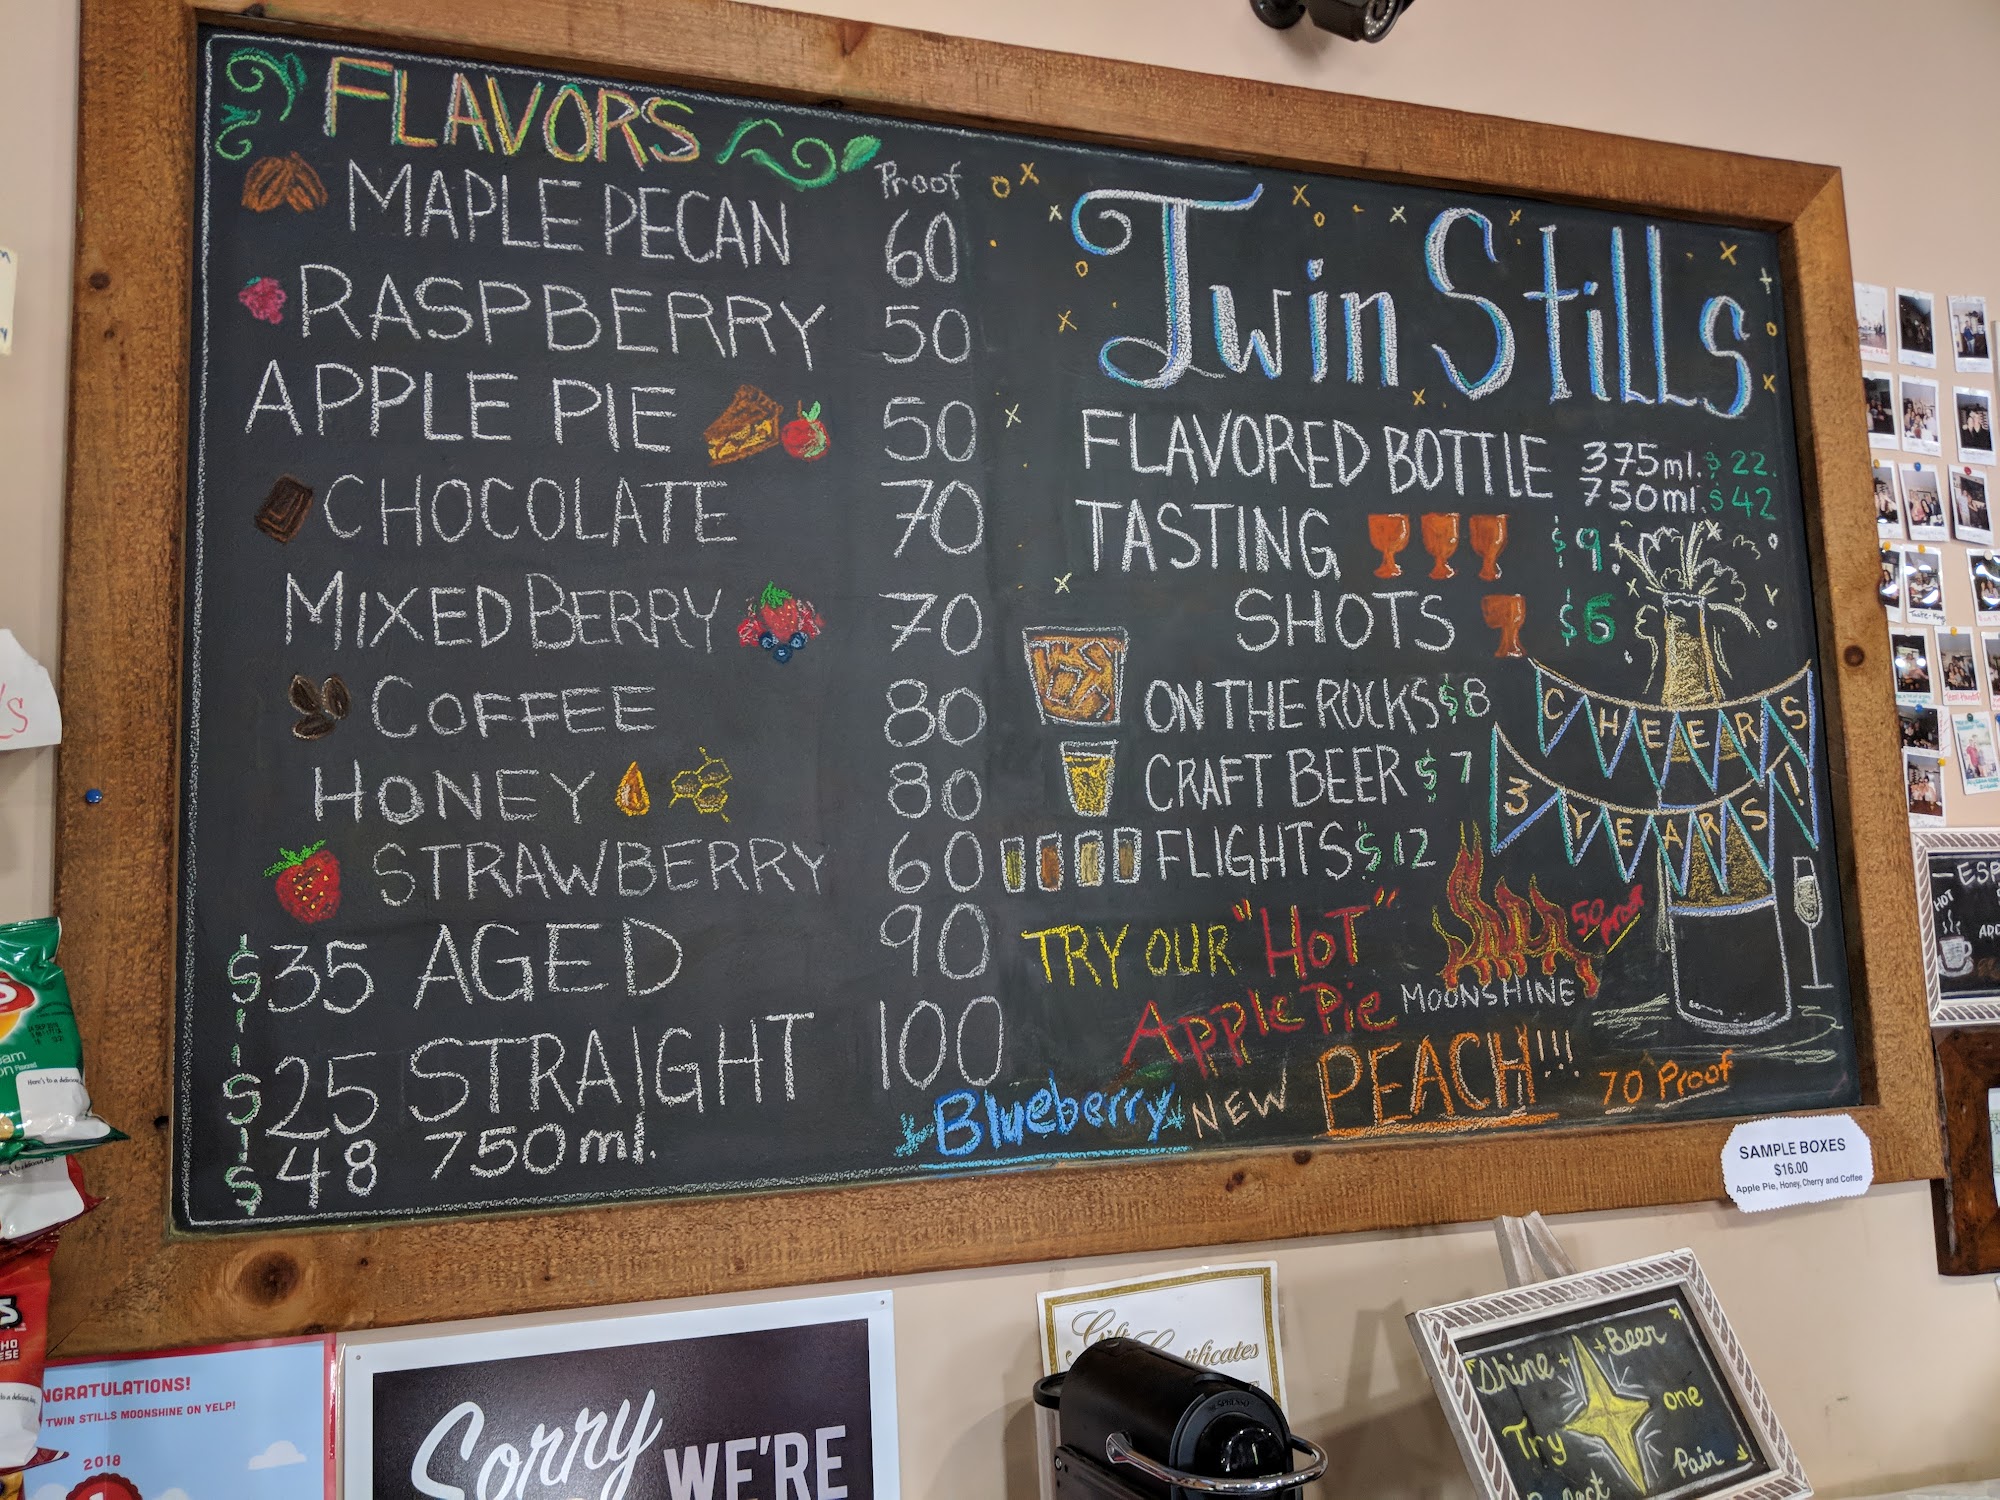 FLAVORS
Proof
MAPLE PECAN 60
RASPBERRY 50
APPLE PIE 50
CHOCOLATE 70
MIXED BERRY 70
COFFEE 80
HONEY 80
STRAWBERRY 60
$35 AGED 90
$25 STRAIGHT 100
$48 750ml.
Twin Stills
FLAVORED BOTTLE 375ml. $22.
750ml. $42
TASTING $9.
SHOTS $6
ON THE ROCKS $8
CRAFT BEER $7
FLIGHTS $12
CHEERS
3 YEARS!
TRY OUR "HOT" 50 Proof
Apple Pie MOONSHINE
Blueberry NEW PEACH!!! 70 Proof
SAMPLE BOXES
$16.00
Apple Pie, Honey, Cherry and Coffee
HOT
NGRATULATIONS!
TWIN STILLS MOONSHINE ON YELP!
2018
Sorry
WE'RE
Gift Certificates
NESPRESSO
Shine + Beer
Try one
Pair